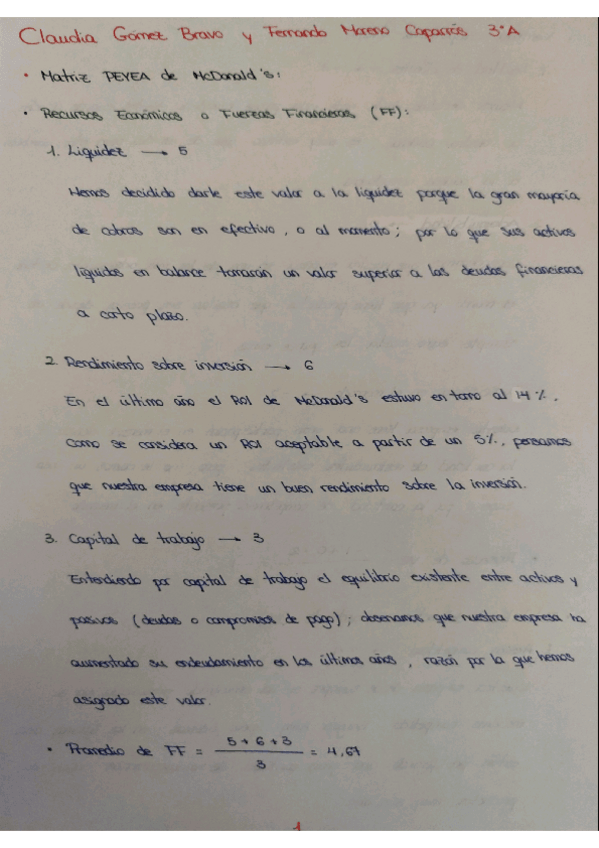 Claudia Gómez Bravo y Fernando Moreno Caparrós 3ºA
• Matriz PEYEA de McDonald's:
• Recursos Económicos o Fuerzas Financieras (FF):
1. Liquidez → 5
Hemos decidido darle este valor a la liquidez porque la gran mayoría
de cobros son en efectivo, o al momento; por lo que sus activos
líquidos en balance tomarán un valor superior a las deudas financieras
a corto plazo.
2. Rendimiento sobre inversión → 6
En el último año el ROI de McDonald's estuvo en torno al 14%,
como se considera un ROI aceptable a partir de un 5%, pensamos
que nuestra empresa tiene un buen rendimiento sobre la inversión.
3. Capital de trabajo → 3
Entendiendo por capital de trabajo el equilibrio existente entre activos y
pasivos (deudas o compromisos de pago); observamos que nuestra empresa ha
aumentado su endeudamiento en los últimos años, razón por la que hemos
asignado este valor.
• Promedio de FF = 5+6+3 / 3 = 4,67
1